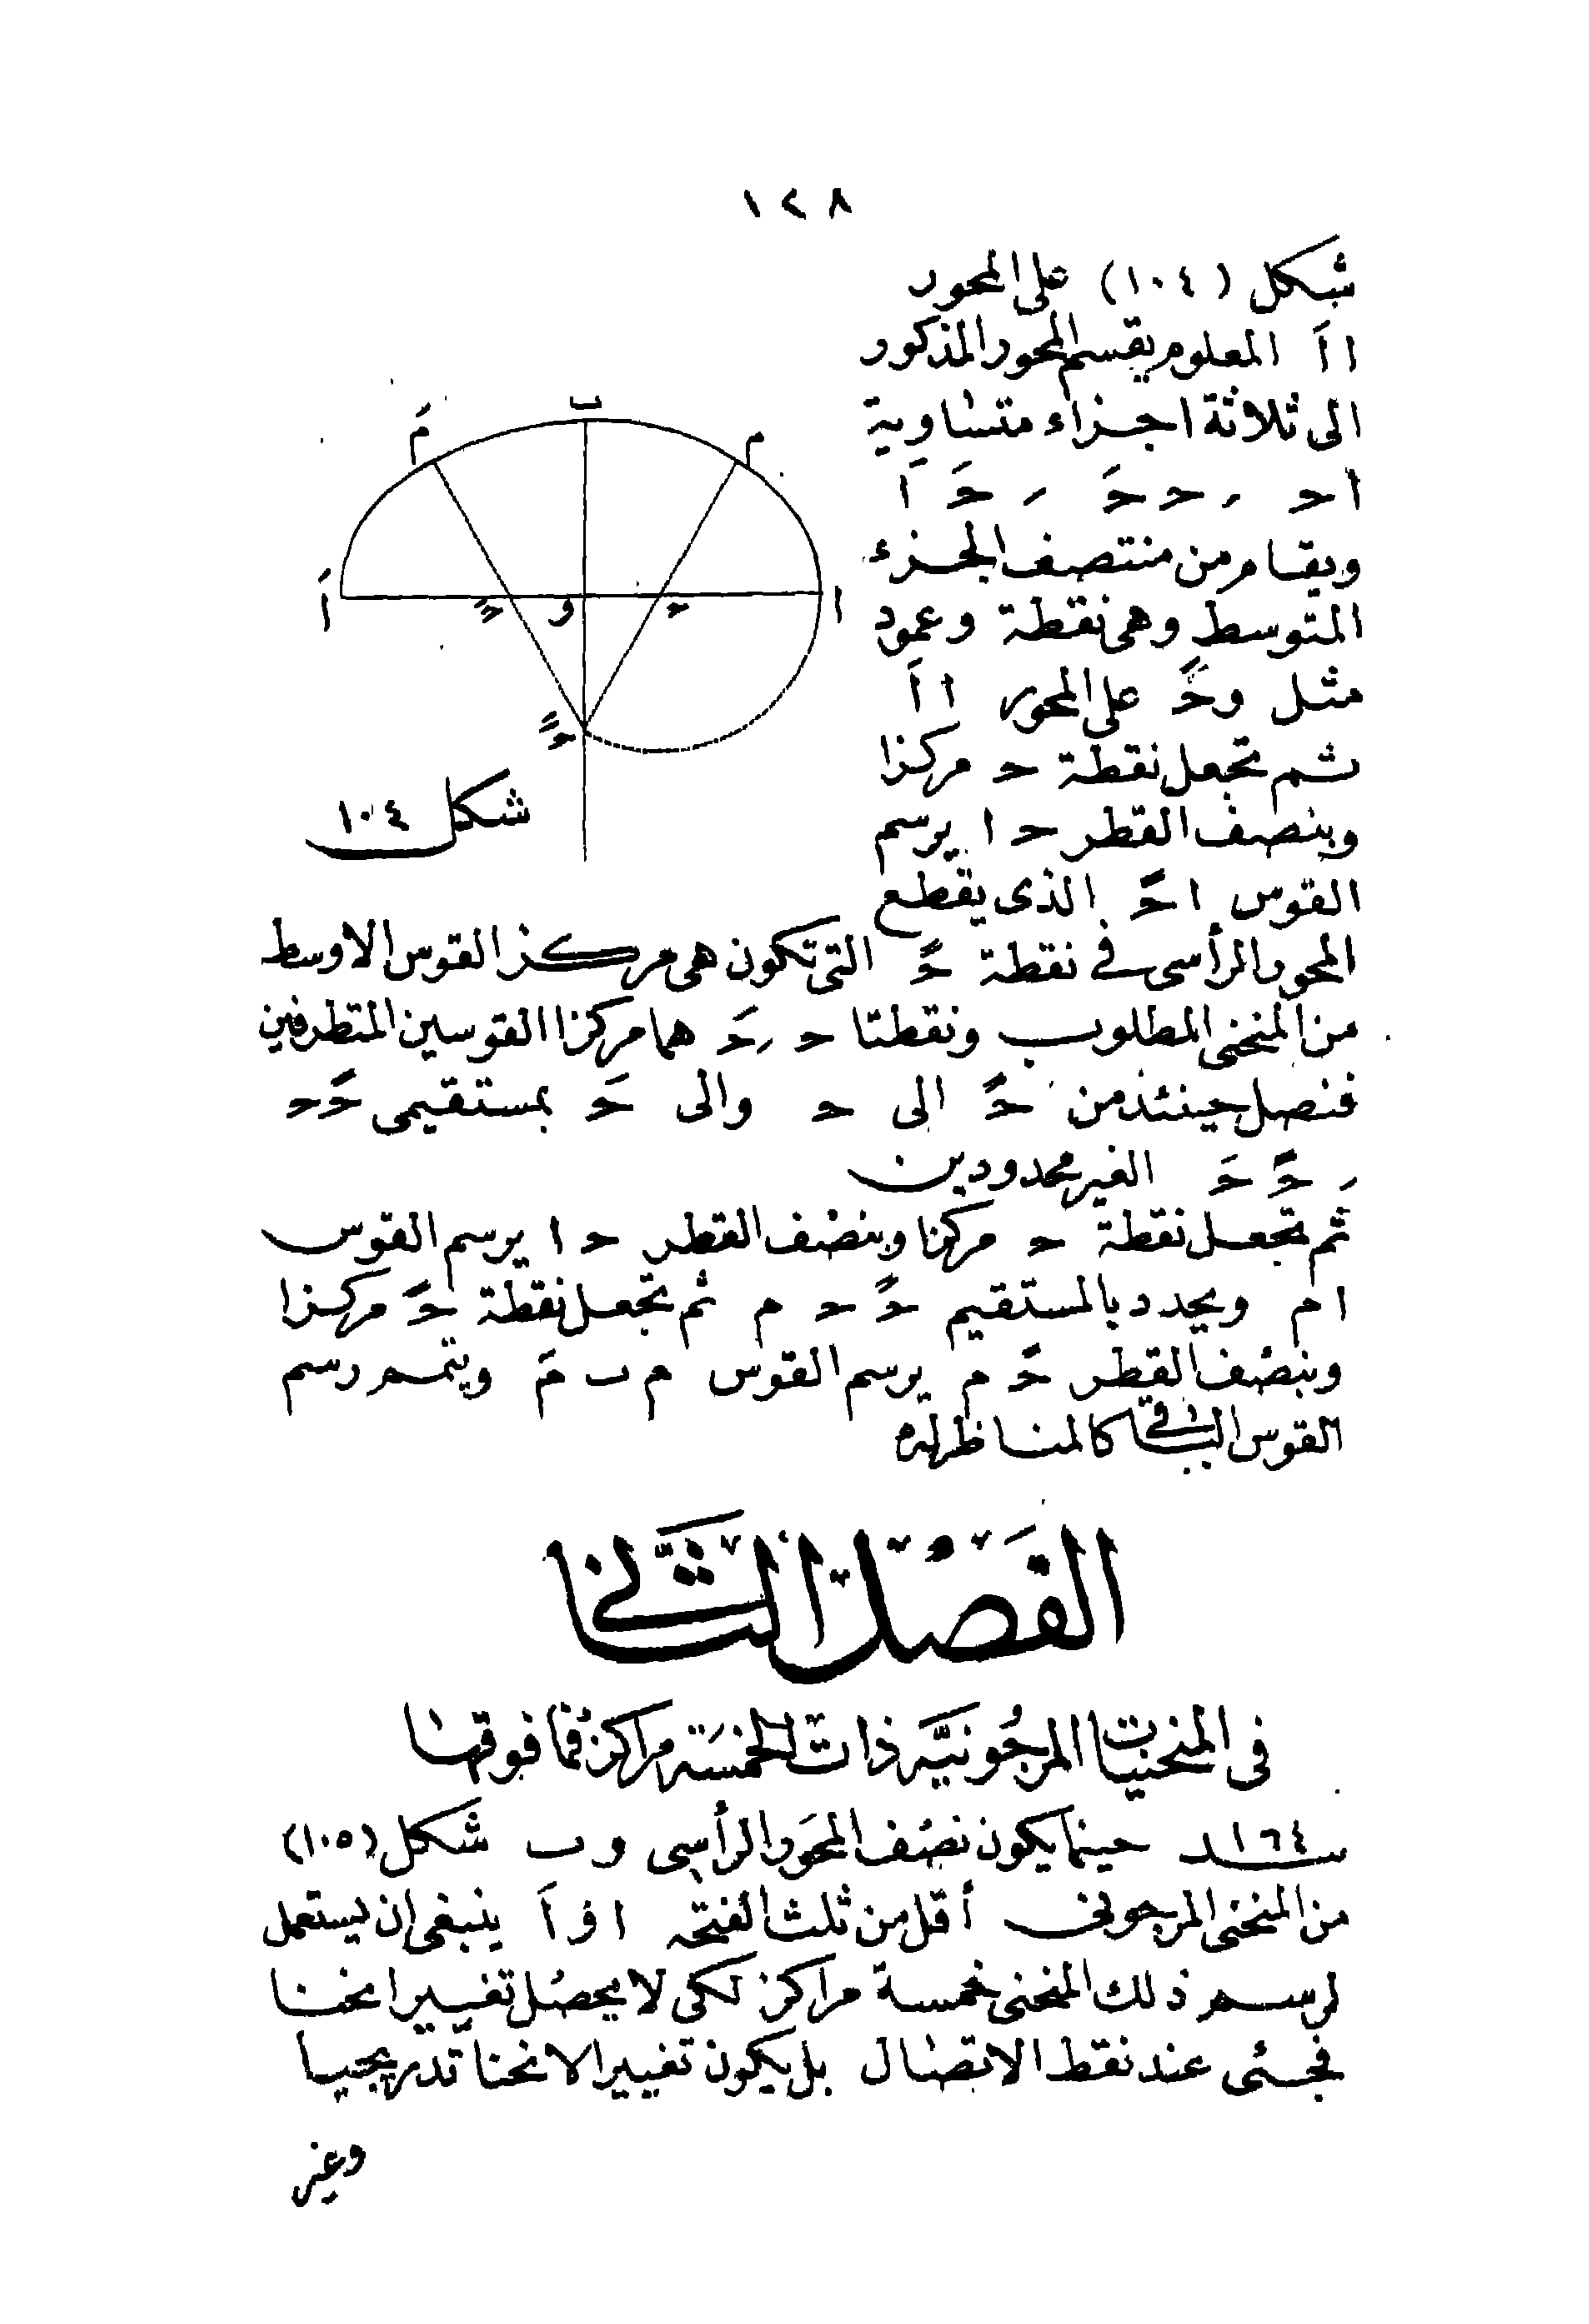 ١٢٨
شكل (١٠٤) على المحور
ا اَ المعلوم يقسم المحور المذكور
الى ثلاثة اجزاء متساوية
ا حـ ر حـ حـَ ر حـَ اَ
ويقام من منتصف الجزء
المتوسط وهى نقطة و عمود
مثل و حـً على المحور ا اَ
ثم تجعل نقطة حـ مركزا
وبنصف القطر حـ ا يرسم
القوس ا حـً الذى يقطع
المحور الرأسى فى نقطة حـً التى تكون هى مركز القوس الاوسط
من المنحنى المطلوب ونقطتا حـ ر حـَ هما مركزا القوسين المتطرفين
فنصل حينئذ من حـً الى حـ والى حـَ بمستقيمى حـً حـ
ر حـً حـَ الغير محدودين
ثم تجعل نقطة حـ مركزا وبنصف القطر حـ ا يرسم القوس
ا م ويحدد بالمستقيم حـً حـ م ثم تجعل نقطة حـً مركزا
وبنصف القطر حـً م يرسم القوس م ب مَ ويتمم رسم
القوس الباقى كالمناظر له
بَ
مَ
م
اَ
حـَ
و
حـ
ا
حـً
شكل ١٠٤
الفصل الثانى
فى المنحنيات المرجونيّه ذات الخمسة مراكز فما فوقها
١٦٤ـنـد حينما يكون نصف المحور الرأسى و ب شكل (١٠٥)
من المنحنى المرجونى أقل من ثلث الفتحه ا و اَ ينبغى ان يستعمل
لرسم ذلك المنحنى خمسة مراكز لكى لا يحصل تغيير انحنا
فجئى عند نقط الاتصال بل يكون تغيير الانحنا تدريجيا